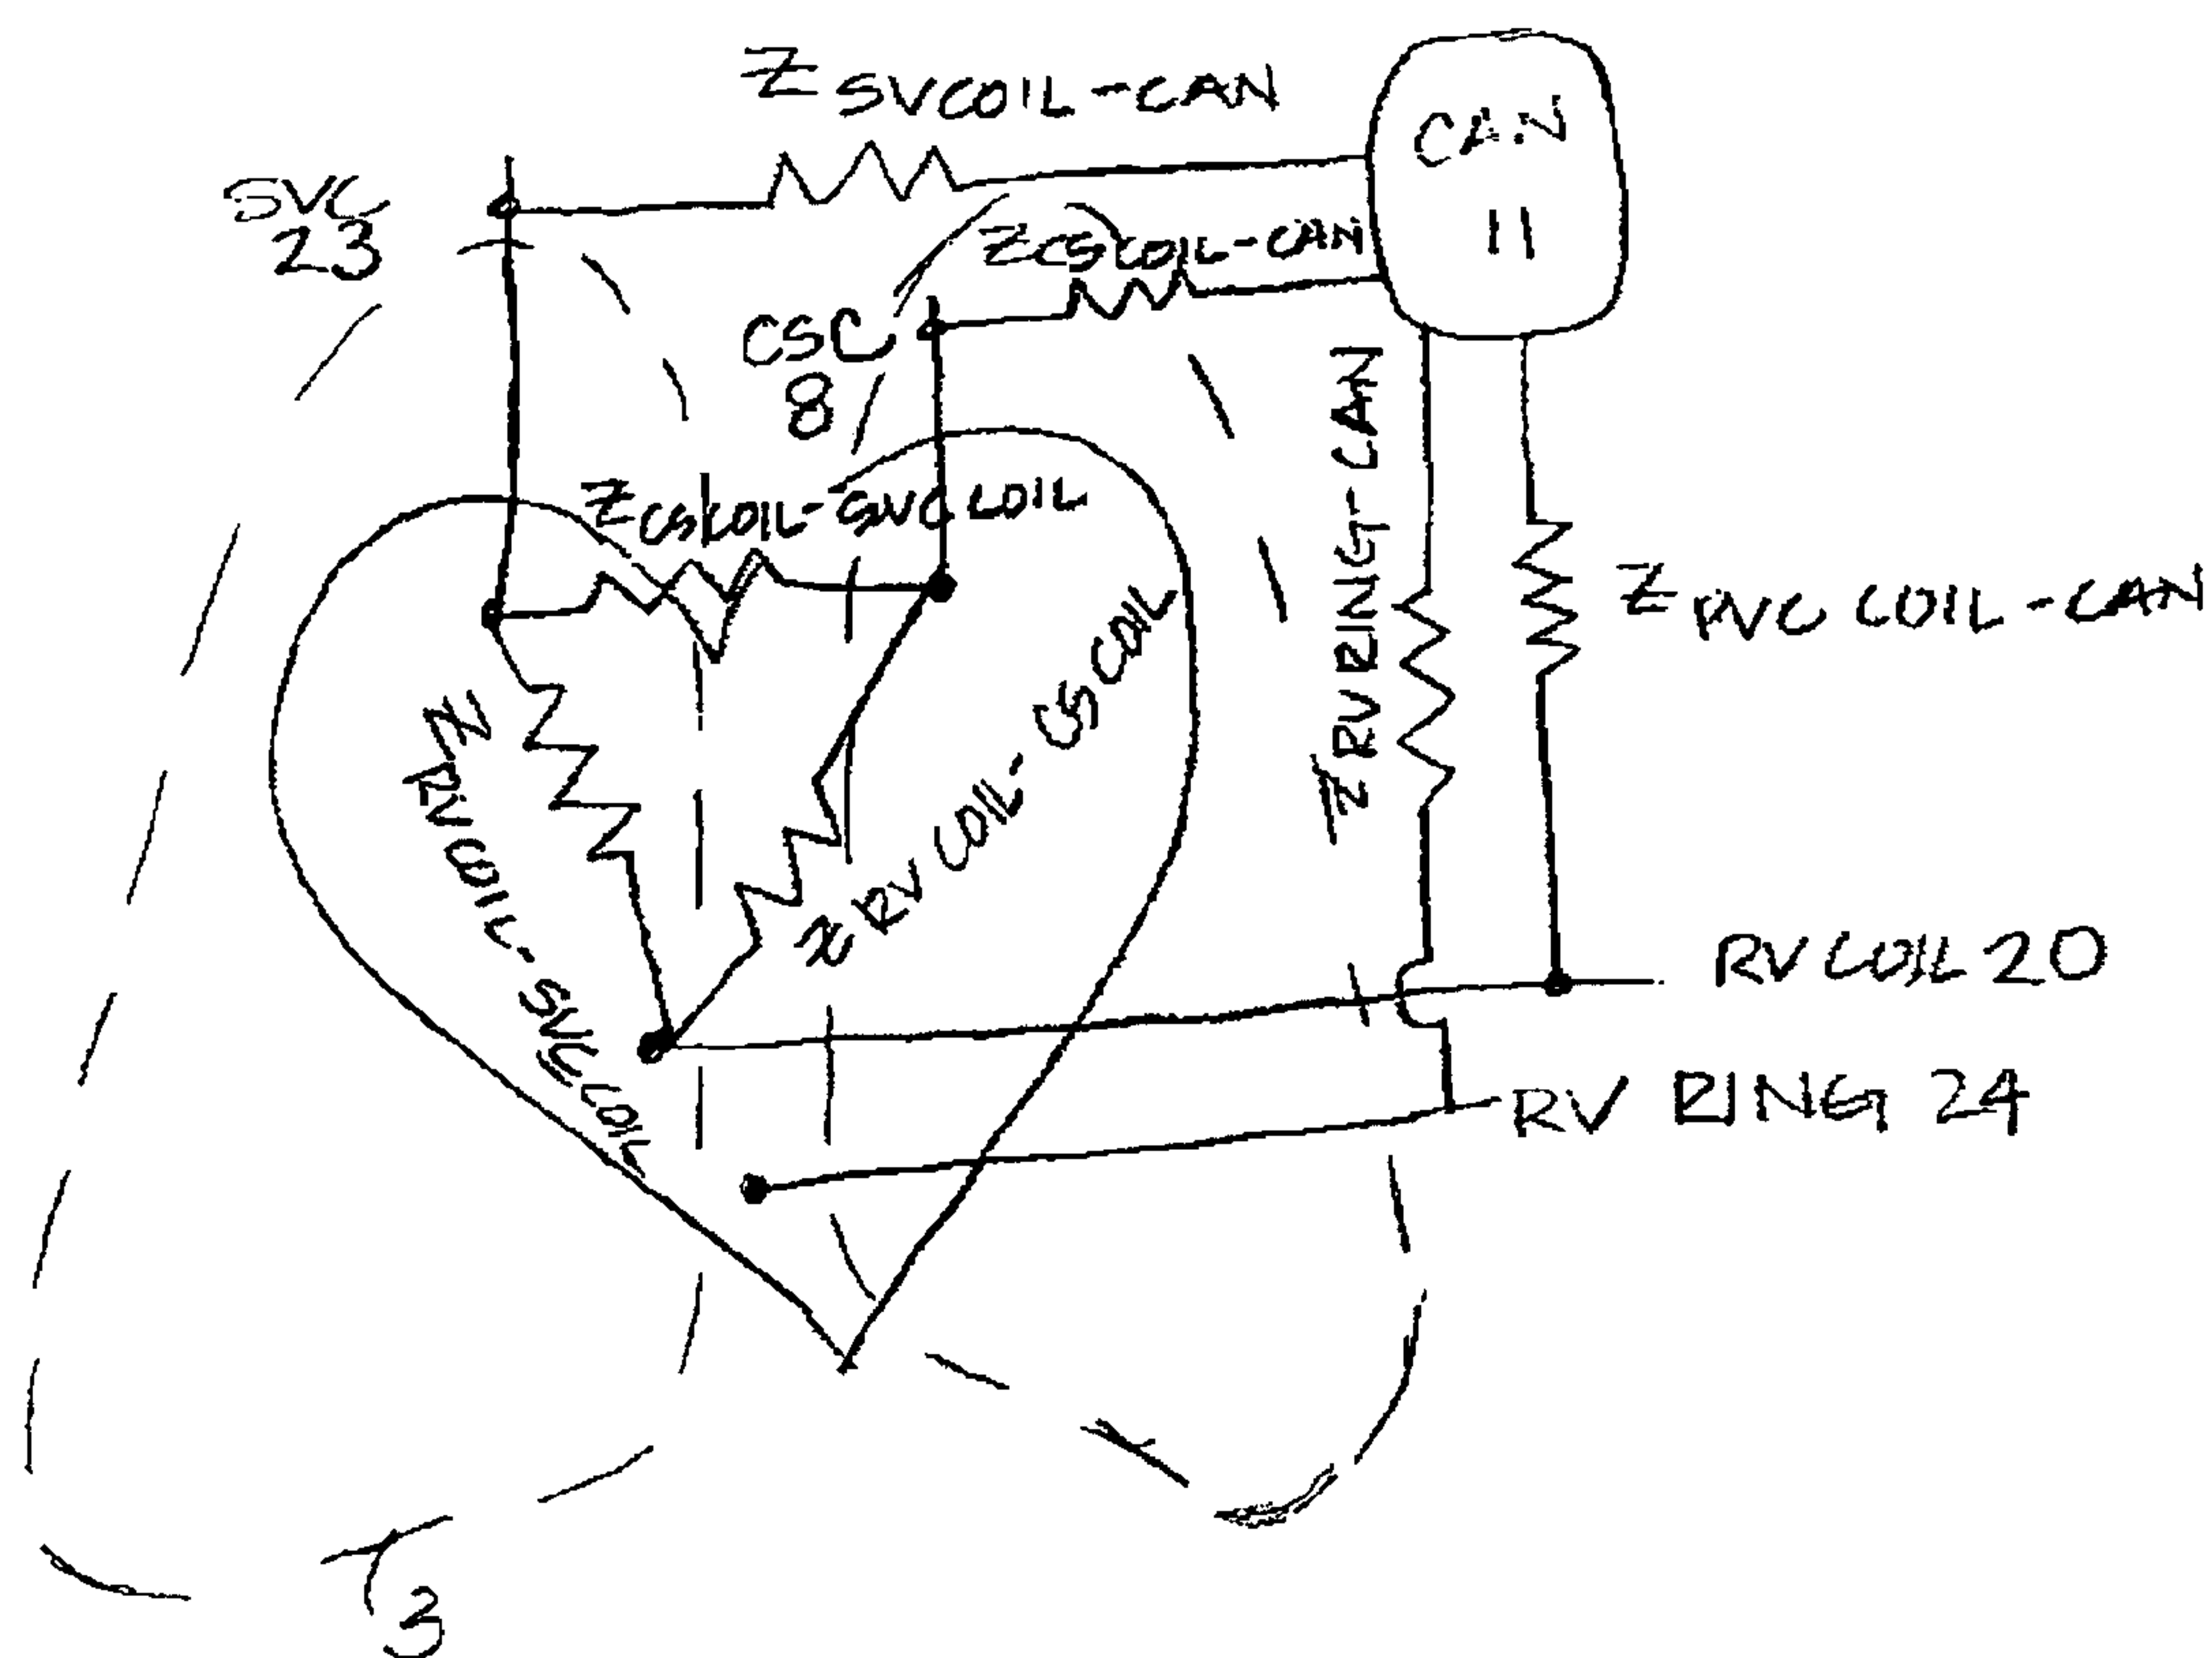 Z SVCOIL-CAN
CAN
11
SVC
23
Z CSCOIL-CAN
CSC
8
Z CSCOIL-SVC COIL
Z RVRING-CAN
Z RVC COIL-CAN
Z RV COIL-SVC COIL
Z RV COIL-CS COIL
RV COIL 20
RV RING 24
3